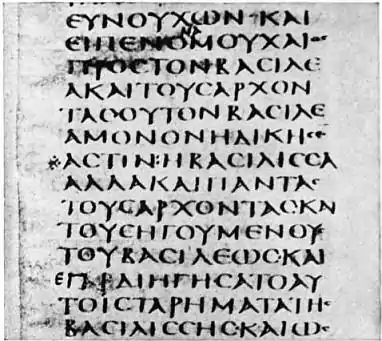 ΕΥΝΟΥΧΩΝ·ΚΑΙ
ΕΙΠΕΝΟΜΟΥΧΑΙΟϹ
ΠΡΟϹΤΟΝΒΑϹΙΛΕ
ΑΚΑΙΤΟΥϹΑΡΧΟΝ
ΤΑϹΟΥΤΟΝΒΑϹΙΛΕ
ΑΜΟΝΟΝΗΔΙΚΗϹΕ
ΑϹΤΙΝ:ΗΒΑϹΙΛΙϹϹΑ
ΑΛΛΑΚΑΙΠΑΝΤΑϹ
ΤΟΥϹΑΡΧΟΝΤΑϹΚΑΙ
ΤΟΥϹΗΓΟΥΜΕΝΟΥϹ
ΤΟΥΒΑϹΙΛΕΩϹΚΑΙ
ΔΙΗΓΗϹΑΤΟΑΥ
ΤΟΙϹΤΑΡΗΜΑΤΑΤΗϹ
ΒΑϹΙΛΙϹϹΗϹΚΑΙΩϹ